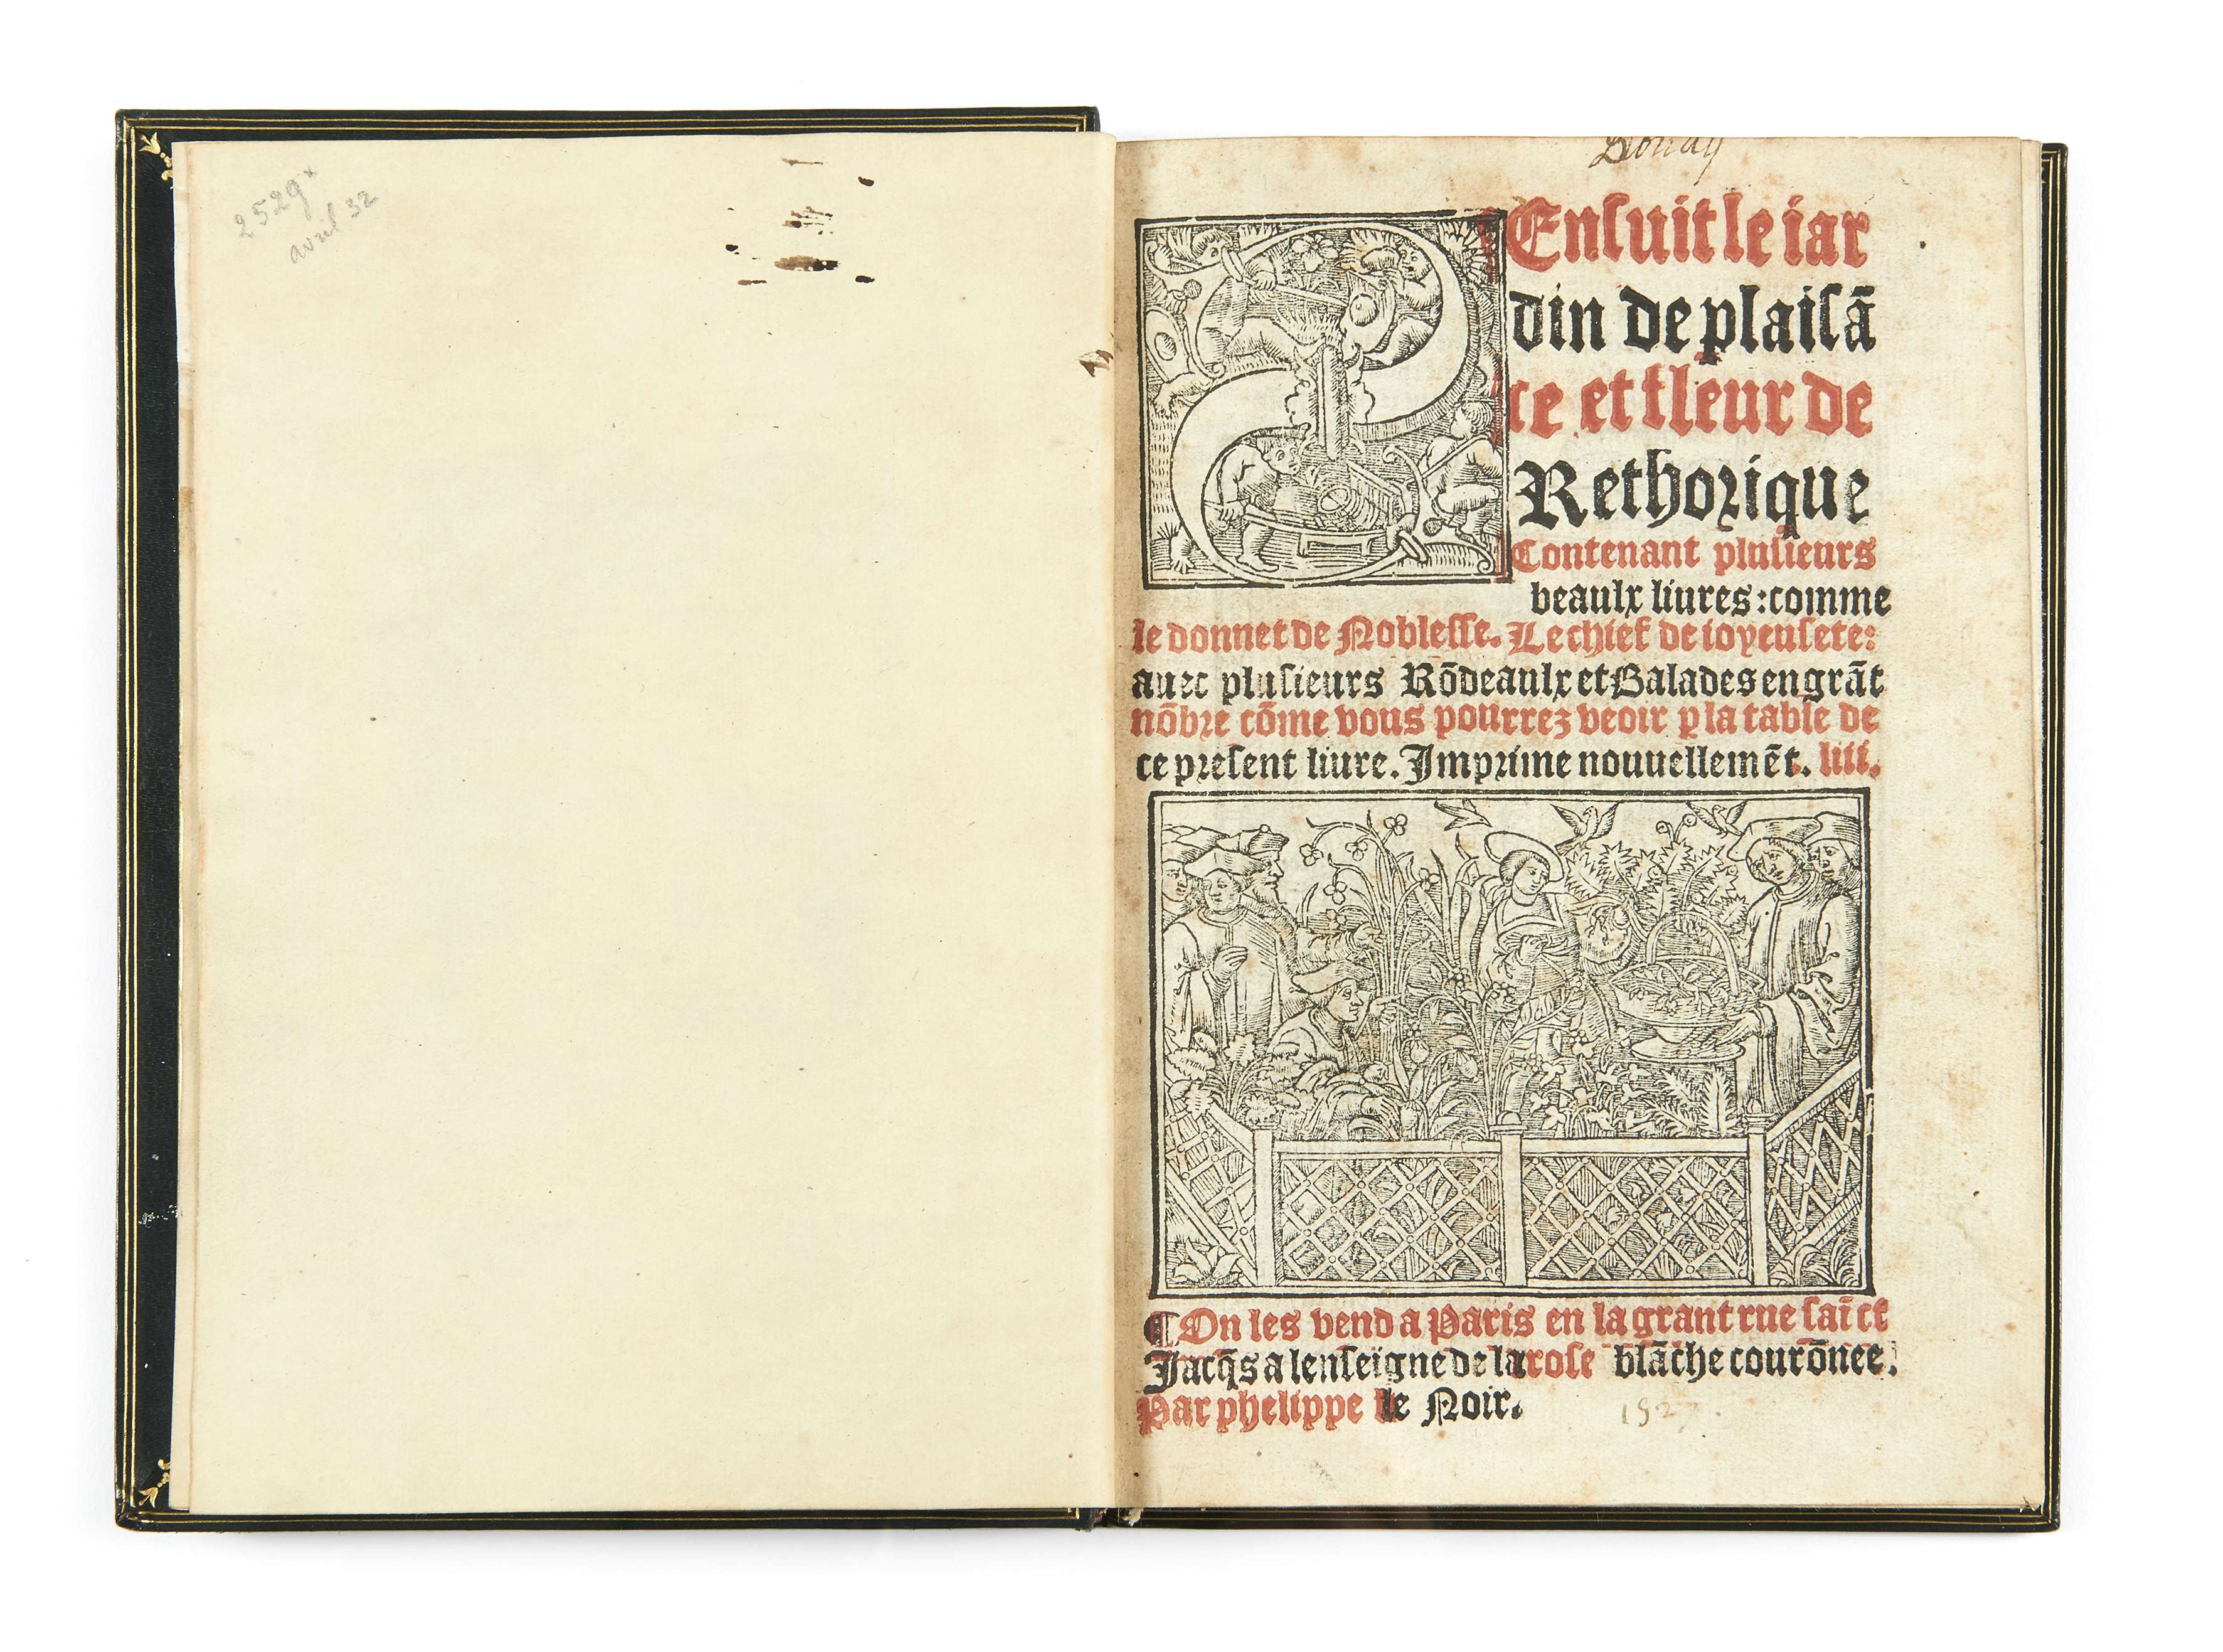 2529x
avril 32
Douay
SEnsuit le iar
din de plaisā
ce et fleur de
Rethorique
Contenant plusieurs
beaulx liures: comme
le donnet de Noblesse. Le chief de ioyeusete:
auec plusieurs Rōdeaulx et Balades en grāt
nōbre cōme vous pourrez veoir ꝑ la table de
ce present liure. Imprime nouuellemēt. liii.
¶ On les vend a Paris en la grant rue saīct
Jacq̄s a lenseigne de la rose blāche courōnee.
Par phelippe le Noir.